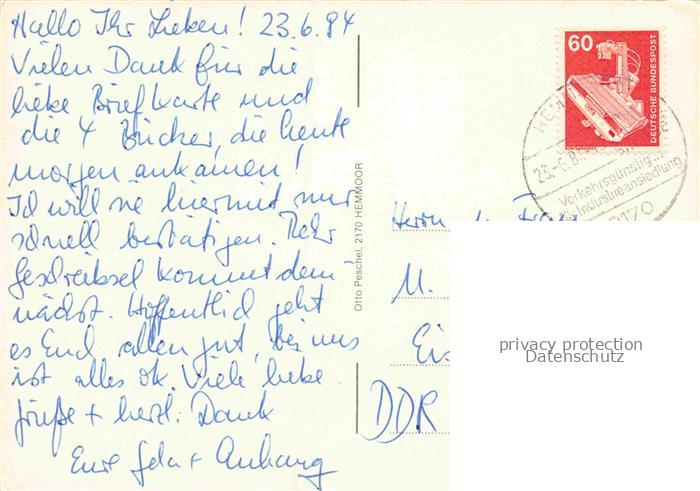 Hallo Ihr Lieben! 23.6.84
Vielen Dank für die
liebe Briefkarte und
die 4 Bücher, die heute
morgen ankamen!
Ich will sie hiermit nur
schnell bestätigen. Mehr
Geschreibsel kommt dem-
nächst. Hoffentlich geht
es Euch allen gut, bei uns
ist alles ok. Viele liebe
Grüße + herzl. Dank
Eure + Anhang
Otto Peschel, 2170 HEMMOOR
60
DEUTSCHE BUNDESPOST
23.-6.8
Verkehrsgünstig...
Industrieansiedlung
2170
Herrn
M.
Eis
DDR
privacy protection
Datenschutz